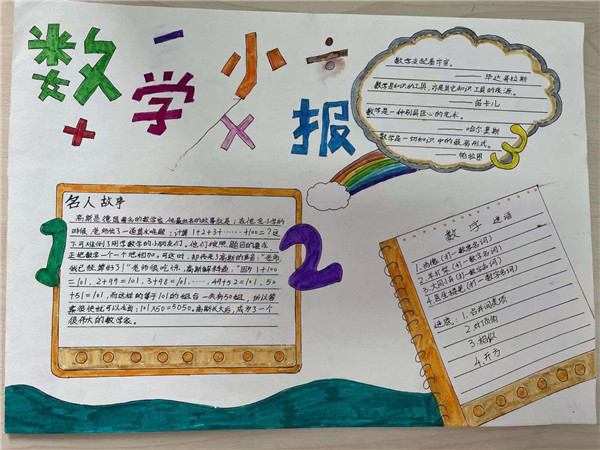 数学小报
数学支配着宇宙。
——毕达哥拉斯
数学是知识的工具,亦是其它知识工具的泉源。
——笛卡儿
数学是一种别具匠心的艺术。
——哈尔莫斯
数学是一切知识中的最高形式。
——柏拉图
3
1
2
名人故事
高斯是德国著名的数学家,他最出名的故事就是:在他念小学的
时候,老师出了一道算术难题:计算1+2+3+……+100=?这
下可难倒了刚学数学的小朋友们,他们按照题目的要求,
正把数字一个一个地相加。可这时,却传来了高斯的声音:“老师,
我已经算好了!”老师很吃惊,高斯解释道:“因为1+100
=101,2+99=101,3+98=101,……,49+52=101,50
+51=101,而这样的等于101的组合一共有50组,所以答
案很快就可以求出:101×50=5050。高斯长大后,成为了一个
很伟大的数学家。
数学谜语
1.肖像(打一数学名词)
2.车对贸(打一数学名词)
3.大同小异(打一数学名词)
4.医生提笔(打一数学名词)
谜底:1.合并同类项
2.对顶角
3.相似
4.开方